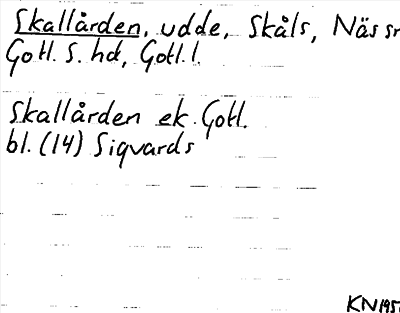 Skallården, udde, Skåls, Näs sn
Gotl. S. hd, Gotl. l.
Skallården ek. Gotl.
bl. (14) Sigvards
KN 195